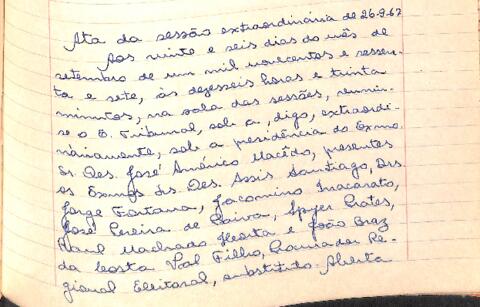 Ata da sessão extraordinária de 26-9-67
Aos vinte e seis dias do mês de
setembro de um mil novecentos e sessen-
ta e sete, às dezesseis horas e trinta
minutos, na sala das sessões, reuniu-
se o E. Tribunal, sob a, digo, extraordi-
nàriamente, sob a presidência do Exmo.
Sr. Des. José Américo Macêdo, presentes
os Exmos. Srs. Des. Assis Santiago, Drs.
Jorge Fontana, Jacomino Inacarato,
José Pereira de Paiva, Spyer Prates,
Raul Machado Horta e João Braz
da Costa Val Filho, Procurador Re-
gional Eleitoral, substituto. Aberta